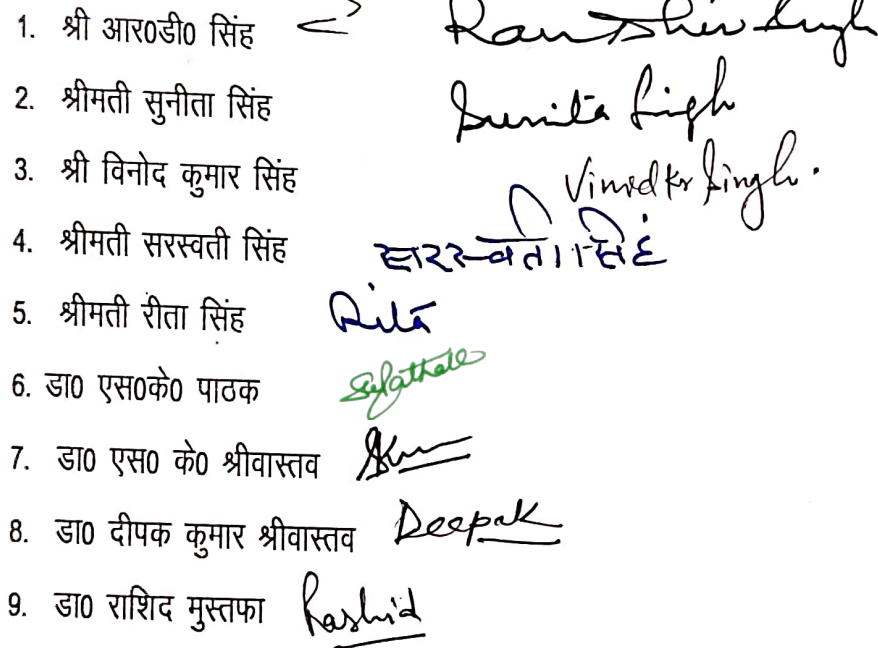 1. श्री आर0डी0 सिंह Ran Dhir Singh
2. श्रीमती सुनीता सिंह Sunita Singh
3. श्री विनोद कुमार सिंह Vinod Kr Singh.
4. श्रीमती सरस्वती सिंह सरस्वती सिहं
5. श्रीमती रीता सिंह Rita
6. डा0 एस0के0 पाठक SKPathak
7. डा0 एस0 के0 श्रीवास्तव
8. डा0 दीपक कुमार श्रीवास्तव Deepak
9. डा0 राशिद मुस्तफा Rashid